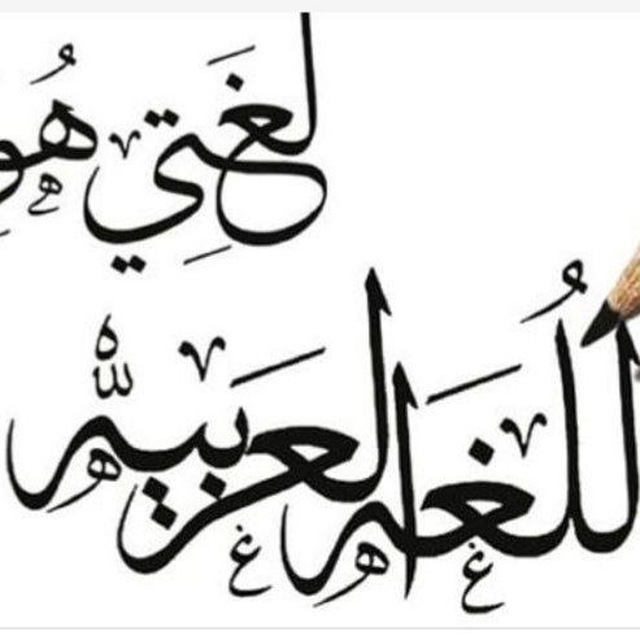 لغتي
اللغة العربية